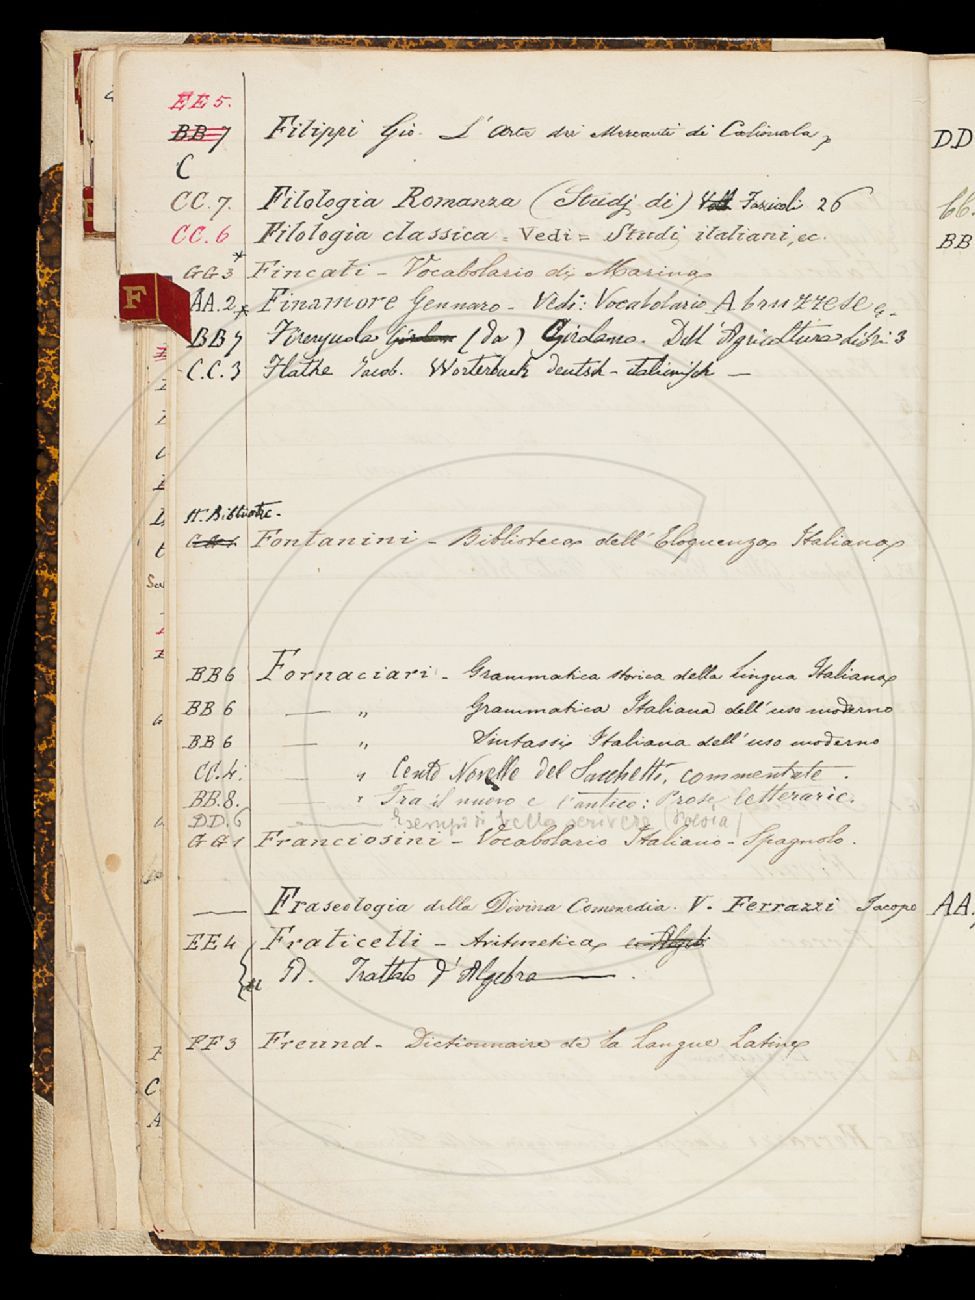 EE 5.
BB 7 Filippi Gio. L'Arte dei Mercanti di Calimala
C
CC. 7. Filologia Romanza (Studj di) Fascicoli 26
CC. 6 Filologia classica = Vedi = Studi italiani, ec.
GG 3 * Fincati - Vocabolario di Marina
AA. 2 * Finamore Gennaro - Vedi: Vocabolario Abruzzese
F
BB 7 Firenzuola (da) Girolamo. Dell'Agricoltura libri 3
C.C. 3 Flathe Jacob. Worterbuch deutsh - italienisch —
St. Bibliotec.
Fontanini - Biblioteca dell'Eloquenza Italiana
BB 6 Fornaciari - Grammatica storica della lingua Italiana
BB 6 — " Grammatica Italiana dell'uso moderno
BB 6 — " Sintassi Italiana dell'uso moderno
CC. 4. — " Cento Novelle del Sacchetti, commentate.
BB. 8. — " Tra il nuovo e l'antico: Prose letterarie.
DD. 6 — Esempi di bello scrivere (Poesia)
GG 1 Franciosini - Vocabolario Italiano - Spagnolo.
— Fraseologia della Divina Commedia. V. Ferrazzi Jacopo
EE 4 Fraticelli - Aritmetica e Algeb
" Id. Trattato d'Algebra — .
FF 3 Freund - Dictionnaire de la Langue Latine
DD
CC.
BB
AA.